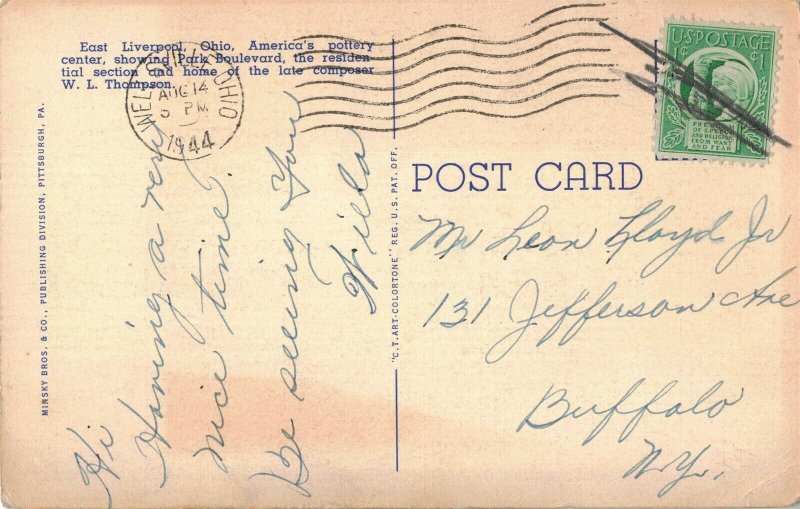 East Liverpool, Ohio, America's pottery
center, showing Park Boulevard, the residen-
tial section and home of the late composer
W. L. Thompson.
WELLSVILLE OHIO
AUG 14
5 PM
1944
U.S. POSTAGE
1¢ ¢1
FREEDOM
OF SPEECH
AND RELIGION
FROM WANT
AND FEAR
MINSKY BROS. & CO., PUBLISHING DIVISION, PITTSBURGH, PA.
"C.T. ART-COLORTONE" REG. U.S. PAT. OFF.
POST CARD
Hi
Having a very
nice time.
Be seeing You
Willa
Mr Leon Lloyd Jr
131 Jefferson Ave
Buffalo
N.Y.